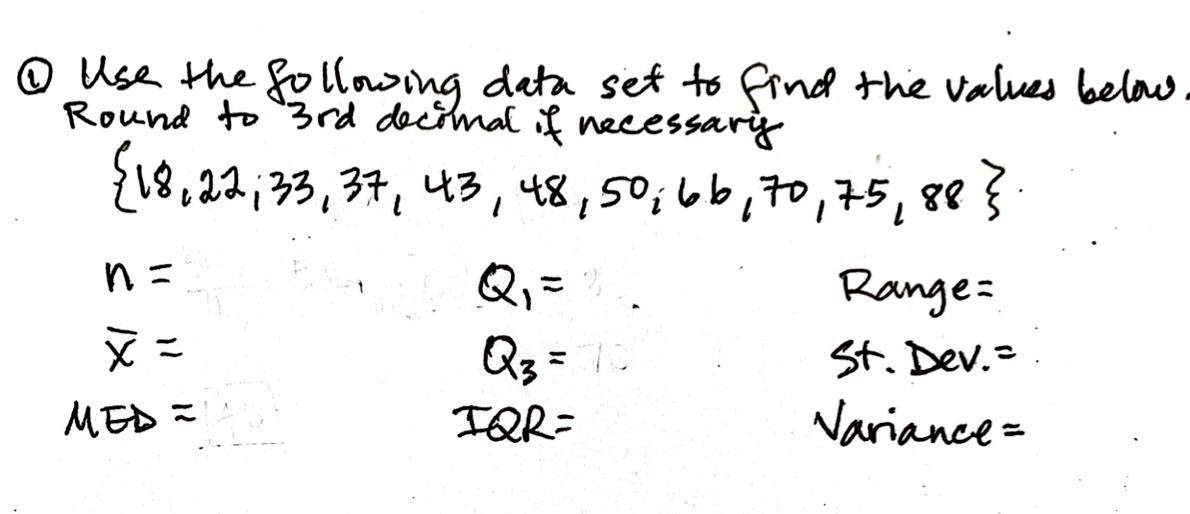 ① Use the following data set to find the values below.
Round to 3rd decimal if necessary
{18, 22, 33, 37, 43, 48, 50, 66, 70, 75, 88}
n = Q₁ = Range =
x̄ = Q₃ = St. Dev. =
MED = IQR = Variance =